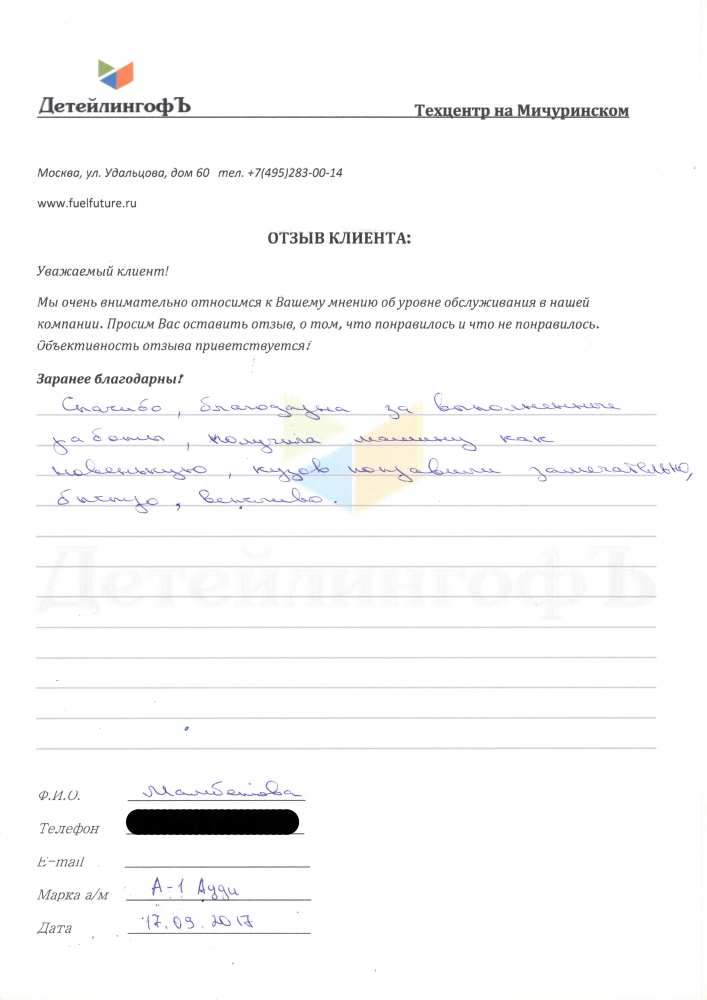 ДетейлингофЪ Техцентр на Мичуринском
Москва, ул. Удальцова, дом 60 тел. +7(495)283-00-14
www.fuelfuture.ru
ОТЗЫВ КЛИЕНТА:
Уважаемый клиент!
Мы очень внимательно относимся к Вашему мнению об уровне обслуживания в нашей
компании. Просим Вас оставить отзыв, о том, что понравилось и что не понравилось.
Объективность отзыва приветствуется!
Заранее благодарны!
Спасибо, благодарна за выполненные
работы, получила машину как
новенькую, кузов поправили замечательно,
быстро, вежливо.
ДетейлингофЪ
Ф.И.О. Мамбетова
Телефон
E-mail
Марка а/м А-1 Ауди
Дата 17.09.2017